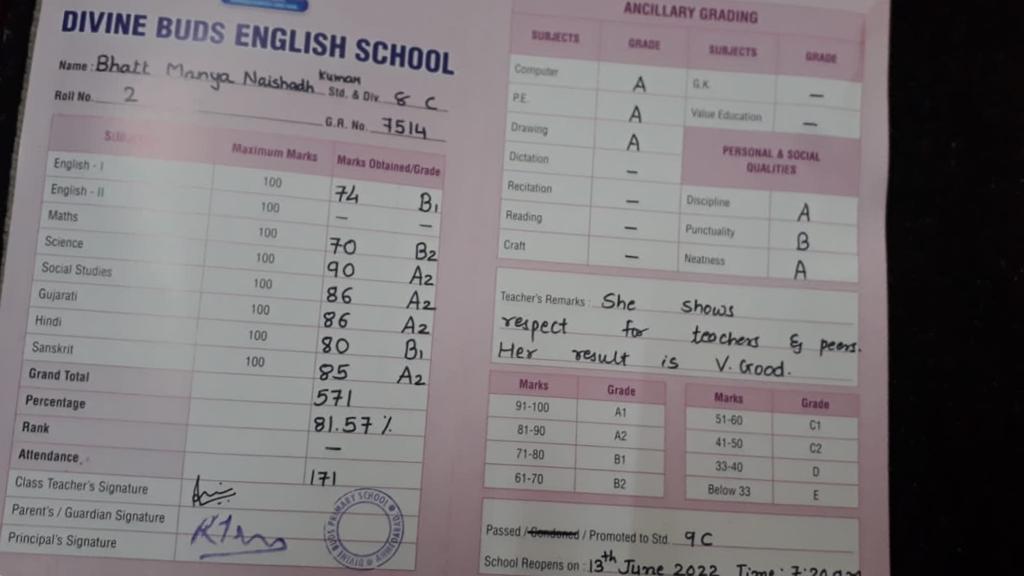 DIVINE BUDS ENGLISH SCHOOL
Name: Bhatt Manya Naishadh Kumar Std. & Div. 8 C
Roll No. 2
G.R. No. 7514
Maximum Marks Marks Obtained/Grade
English - I 100 74 B1
English - II 100 — —
Maths 100 70 B2
Science 100 90 A2
Social Studies 100 86 A2
Gujarati 100 86 A2
Hindi 100 80 B1
Sanskrit 100 85 A2
Grand Total 571
Percentage 81.57 %
Rank —
Attendance 171
Class Teacher's Signature
Parent's / Guardian Signature
Principal's Signature
DIVINE BUDS PRIMARY SCHOOL
ANCILLARY GRADING
SUBJECTS GRADE SUBJECTS GRADE
Computer A G.K. —
P.E. A Value Education —
Drawing A PERSONAL & SOCIAL
QUALITIES
Dictation —
Recitation — Discipline A
Reading — Punctuality B
Craft — Neatness A
Teacher's Remarks : She shows
respect for teachers & peers.
Her result is V. Good.
Marks Grade Marks Grade
91-100 A1 51-60 C1
81-90 A2 41-50 C2
71-80 B1 33-40 D
61-70 B2 Below 33 E
Passed / Condoned / Promoted to Std. 9 C
School Reopens on : 13th June 2022 Time : 7:20 am